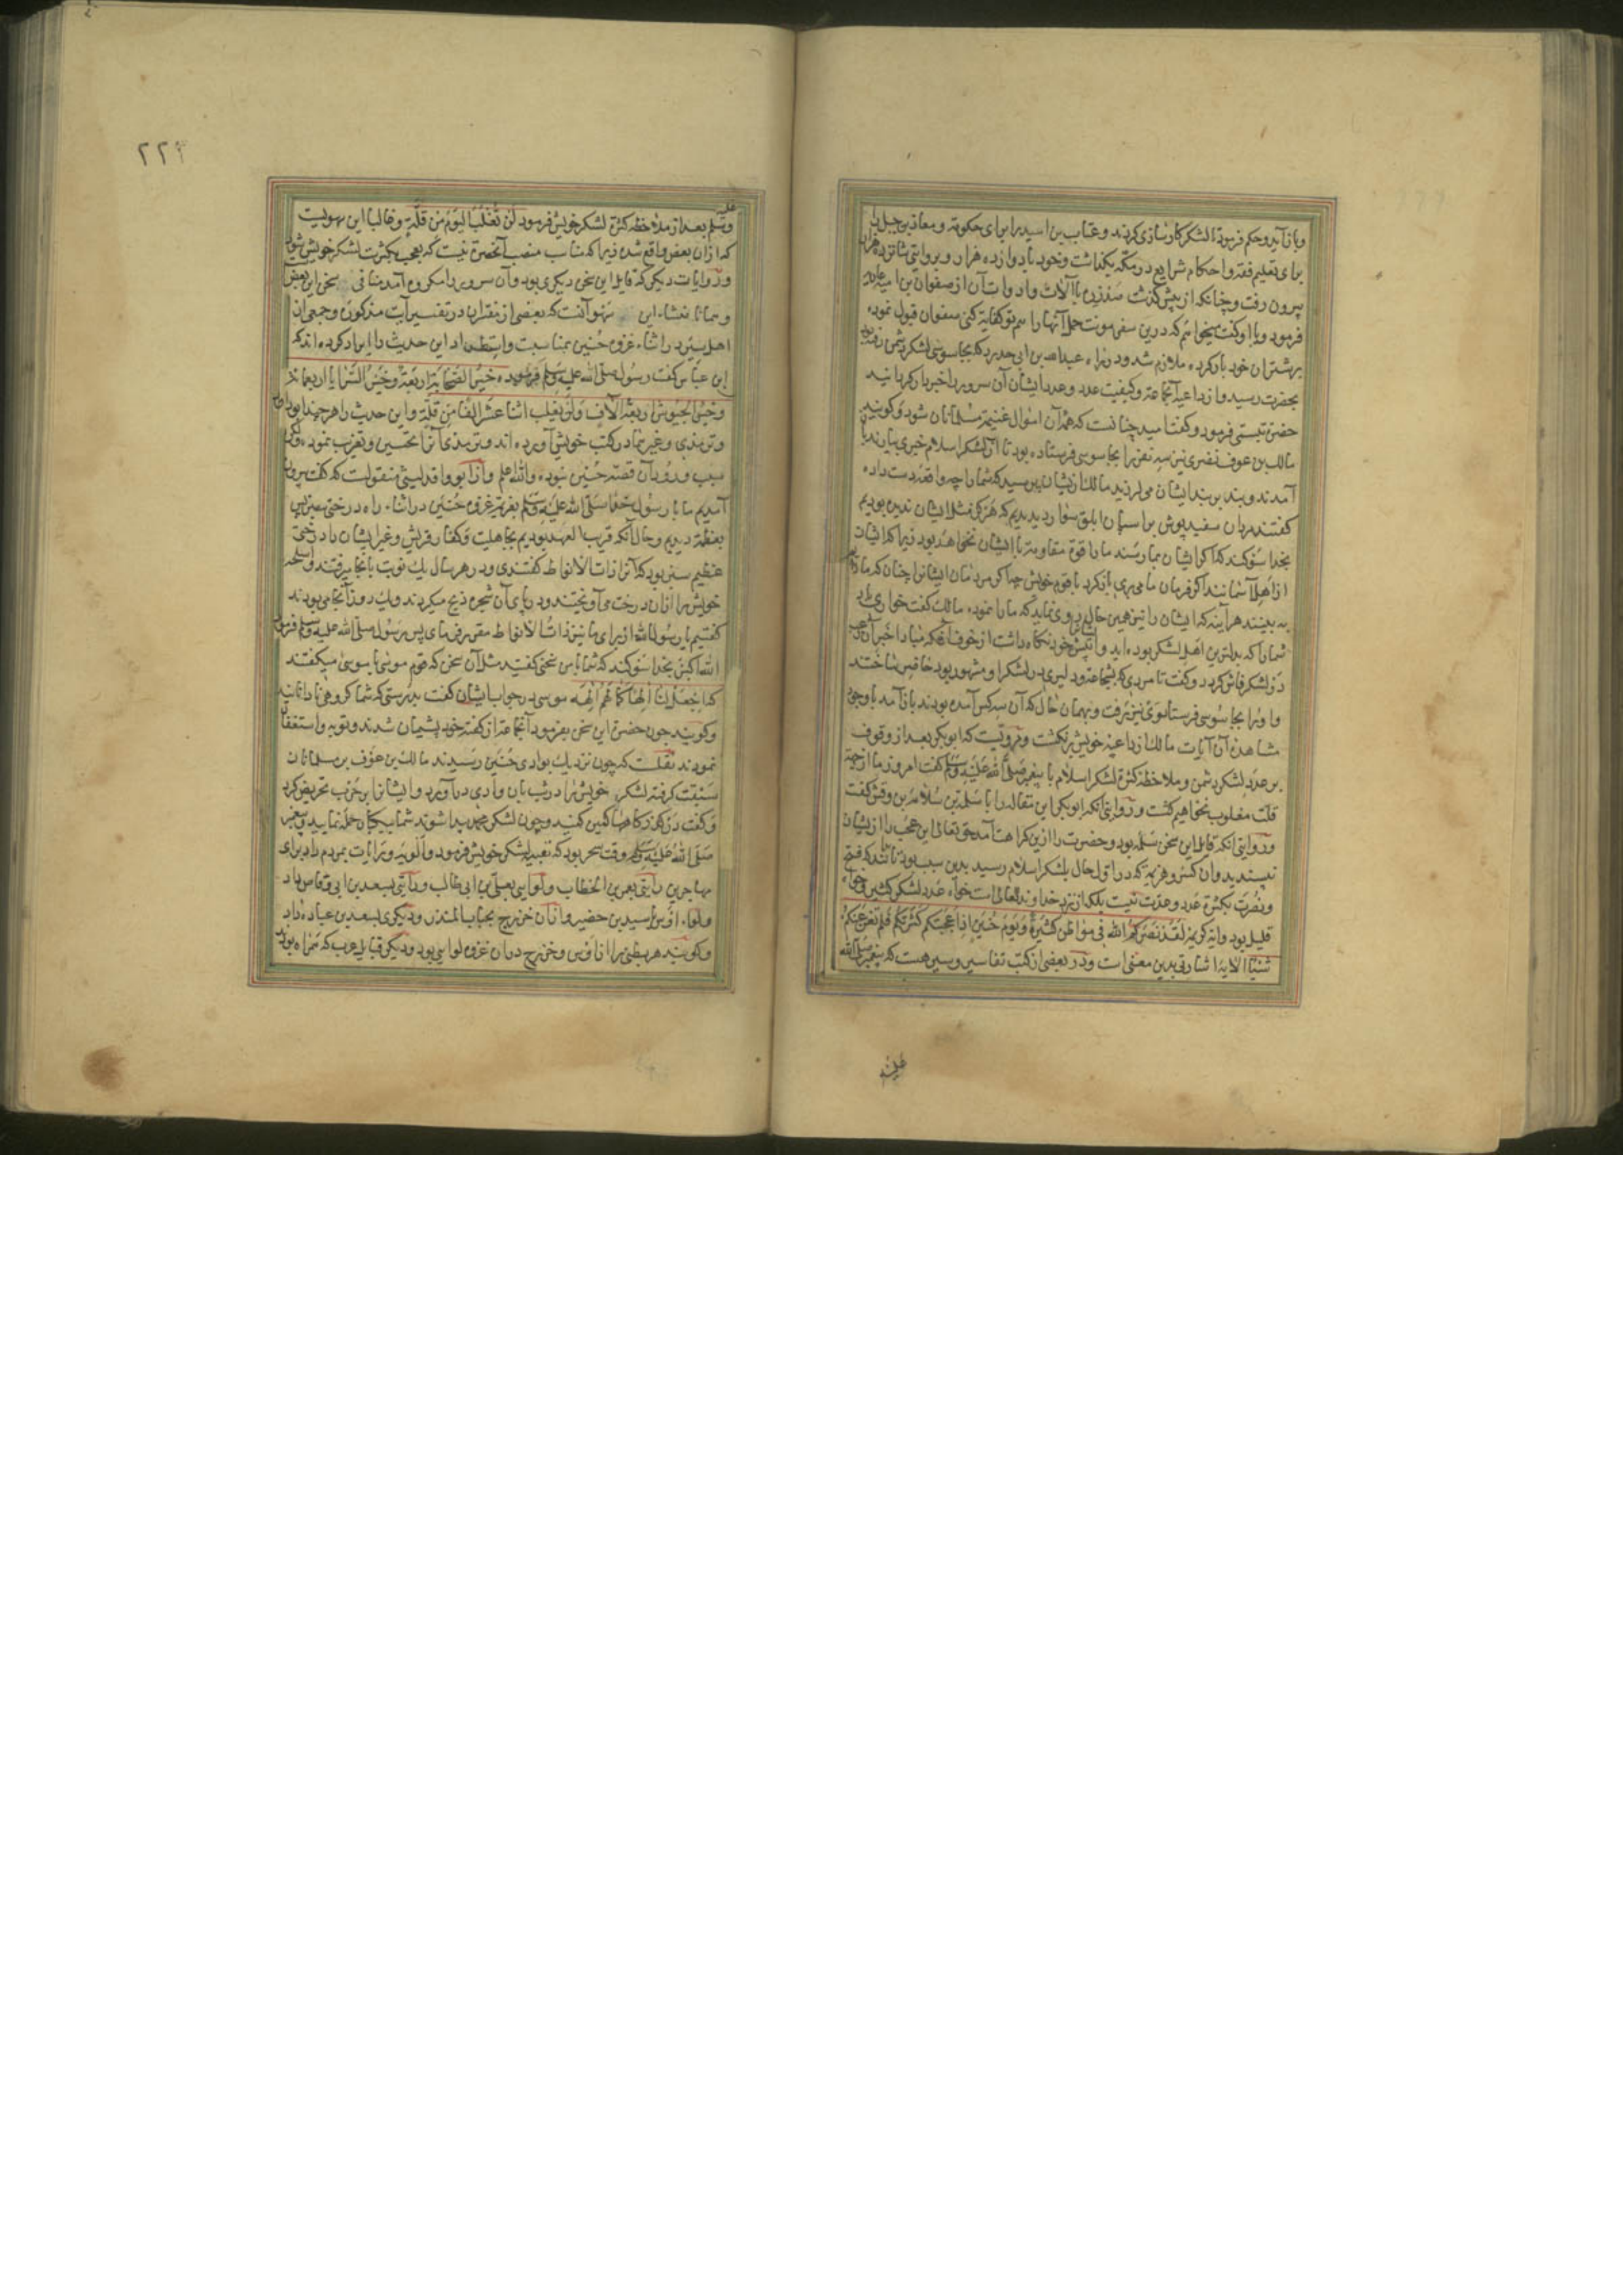 و باز آید و حکم فرمود تا لشکر کارسازی کردند و عتاب بن اسید را برای حکومة و معاذ بن جبل را
برای تعلیم فقه و احکام شرایع در مکه بگذاشت و خود با دوازده هزار و بروایتی شانزده هزار
بیرون رفت و چنانکه از پیش گذشت صد زره با آلات و ادوات آن از صفوان بن امیه عاریه
فرمود و با او گفت میخواهم که درین سفر مونت حمل آنها را هم تو کفایة کنی صفوان قبول نموده
بر شتران خود بار کرده ملازم شد و در راه عبدالله بن ابی حدرد که بجاسوسی لشکر دشمن رفته بود
بحضرت رسید و از داعیه آنجماعة و کیفیت عدد و عدد ایشان آن سرور را خبردار گردانید
حضرة تبسمی فرمود و گفت امید چنانست که همه آن اموال غنیمة مسلمانان شود و گویند
مالک بن عوف نضری نیز سه نفر را بجاسوسی فرستاده بود تا از لشکر اسلام خبری بیارند
آمدند و بند بر بند ایشان می لرزید مالک از ایشان پرسید که شما را چه واقعه دست داده
گفتند مردان سفید پوش بر اسپان ابلق سوار دیدیم که هرگز مثل ایشان ندیده بودیم
بخدا سوگند که اگر ایشان بما رسند ما را قوة مقاومة با ایشان نخواهد بود زیرا که ایشان
از اهل آسمانند اگر فرمان ما می بری باز گرد با قوم خویش چه اگر مردمان ایشانرا چنان که ما دیدیم
به بینند هر آینه که ایشان را نیز همین حال روی نماید که ما را نموده مالک گفت خواری باد
شما را که بدترین اهل لشکر بوده اید و ایشان را پیش خود نگاه داشت از خوف آنکه مبادا خبر آن رعب
در لشکر فاش گردد و گفت تا مردی که بشجاعة و دلیری در لشکر او مشهور بود حاضر ساختند
و او را بجاسوسی فرستاد وی نیز برفت و بهمان حال که آن سه کس آمده بودند باز آمد با وجود
مشاهده آن آیات مالک از داعیه خویش برنگشت و مرویست که ابوبکر بعد از وقوف
بر عدد لشکر دشمن و ملاحظه کثرة لشکر اسلام با پیغمبر صلی الله علیه وسلم گفت امروز ما از جهة
قلت مغلوب نخواهیم گشت و روایتی آنکه ابوبکر این مقاله را با سلمة بن سلامة بن وقش گفت
و روایتی آنکه قایل این سخن سلمه بود و حضرت را ازین کراهت آمد حق تعالی این عجب را از ایشان
نپسندید و آن کسر و هزیمة که در اول حال بلشکر اسلام رسید بدین سبب بود تا بدانند که فتح
و نصرت بکثرة عدد و عدت نیست بلکه از نزد خداوند تعالی است خواه عدد لشکر کثیر و خواه
قلیل بود و ایه کریمه لقد نصرکم الله فی مواطن کثیرة و یوم حنین اذ اعجبتکم کثرتکم فلم تغن عنکم
شیئا الایة اشارتی بدین معنی است و در بعضی از کتب تفاسیر و سیر هست که پیغمبر صلی الله
علیه
۲۲۹
علیه
وسلم بعد از ملاحظه کثرة لشکر خویش فرمود لن نغلب الیوم من قلة و غالبا این سهویست
که از ان بعض واقع شده زیرا که مناسب منصب آنحضرة نیست که بعجب بکثرت لشکر خویش شود
و روایات دیگر که قایل این سخن دیگری بود و آن سرور را مکروه آمد منافی سخن این بعض
و همانا منشاء این سهو آنست که بعضی از مفسران در تفسیر آیت مذکوره و جمعی از
اهل سیر در اثناء غزوه حنین بمناسبت و استطراد این حدیث را ایراد کرده اند که
ابن عباس گفت رسول صلی الله علیه وسلم فرموده خیر الصحابة اربعة و خیر السرایا اربعمائة
و خیر الجیوش اربعة آلاف و لن یغلب اثنا عشر الفا من قلة و این حدیث را هر چند ابوداود
و ترمذی و غیرهما در کتب خویش آورده اند و ترمذی آنرا تحسین و تغریب نموده ولکن
سبب ورود آن قصه حنین نبوده والله اعلم و از ابو واقد لیثی منقولست که گفت بیرون
آمدیم ما با رسول خدا صلی الله علیه وسلم بعزیمة غزوه حنین در اثناء راه درختی سبز
بعظمة دیدیم و حال آنکه قریب العهد بودیم بجاهلیت و کفار قریش و غیر ایشان را درختی
عظیم سبز بود که آنرا ذات الانواط گفتندی و در هر سال یک نوبت بانجا میرفتند و اسلحه
خویش را از ان درخت می آویختند و در پای آن شجره ذبح میکردند و یک روز آنجا می بودند
گفتیم یا رسول الله از برای ما نیز ذات الانواط مقرر فرمای پس رسول صلی الله علیه وسلم فرمود
الله اکبر بخدا سوگند که شما با من سخنی گفتید مثل آن سخن که قوم موسی با موسی میگفتند
که اجعل لنا الها کما لهم الهة موسی در جواب ایشان گفت بدرستی که شما گروهی نادانانید
و گویند چون حضرة این سخن بفرمود آنجماعة از گفته خود پشیمان شدند و توبه و استغفار
نمودند نقلست که چون نزدیک بوادی حنین رسیدند مالک بن عوف بر مسلمانان
سبقت گرفته لشکر خویش را در شب بان وادی درآورد و ایشانرا بر حرب تحریض کرد
و گفت در گذرگاهها کمین کنید و چون لشکر محمد پیدا شوند شما بیکبار حمله نمایید و پیغمبر
صلی الله علیه وسلم وقت سحر بود که تعبیه لشکر خویش فرمود و الویه و رایات بمردم داد برای
مهاجرین رایتی بعمر بن الخطاب و لوایی بعلی بن ابی طالب و رایتی بسعد بن ابی وقاص داد
و لواء اوس باسید بن حضیر و از ان خزرج بحباب المنذر و دیگری بسعد بن عباده داد
و گویند هر بطنی را از اوس و خزرج در ان غزوه لوایی بود و دیگر قبایل عرب که همراه بودند